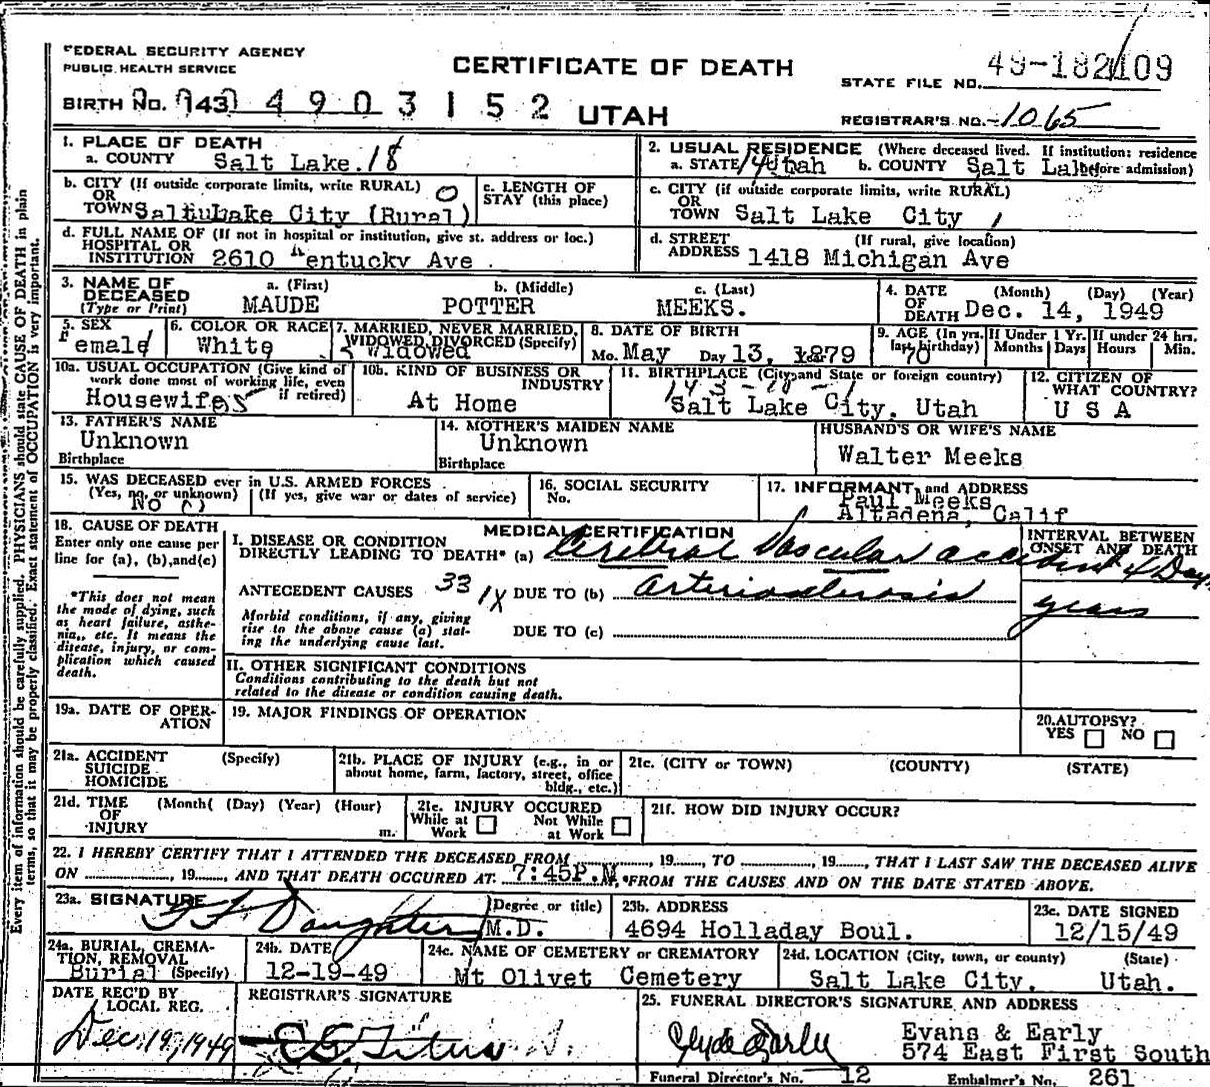 FEDERAL SECURITY AGENCY
PUBLIC HEALTH SERVICE
CERTIFICATE OF DEATH
STATE FILE NO. 49-182109
BIRTH NO. 143 4903152 UTAH
REGISTRAR'S NO. 1065
Every item of information should be carefully supplied. PHYSICIANS should state CAUSE OF DEATH in plain
terms, so that it may be properly classified. Exact statement of OCCUPATION is very important.
1. PLACE OF DEATH
a. COUNTY Salt Lake. 18
2. USUAL RESIDENCE (Where deceased lived. If institution: residence
a. STATE Utah b. COUNTY Salt Lake before admission)
b. CITY (If outside corporate limits, write RURAL) 0
OR
TOWN Salt Lake City (Rural)
c. LENGTH OF
STAY (this place)
c. CITY (if outside corporate limits, write RURAL)
OR
TOWN Salt Lake City
d. FULL NAME OF (If not in hospital or institution, give st. address or loc.)
HOSPITAL OR
INSTITUTION 2610 Kentucky Ave
d. STREET (If rural, give location)
ADDRESS 1418 Michigan Ave
3. NAME OF a. (First) b. (Middle) c. (Last)
DECEASED
(Type or Print) MAUDE POTTER MEEKS.
4. DATE (Month) (Day) (Year)
OF
DEATH Dec. 14, 1949
5. SEX
Female
6. COLOR OR RACE
White
7. MARRIED, NEVER MARRIED,
WIDOWED, DIVORCED (Specify)
Widowed
8. DATE OF BIRTH
Mo. May Day 13, Year 1879
9. AGE (In yrs. last birthday) 70
If Under 1 Yr. Months Days
If under 24 hrs. Hours Min.
10a. USUAL OCCUPATION (Give kind of
work done most of working life, even
if retired)
Housewife
10b. KIND OF BUSINESS OR
INDUSTRY
At Home
11. BIRTHPLACE (City and State or foreign country)
Salt Lake City, Utah
12. CITIZEN OF
WHAT COUNTRY?
U S A
13. FATHER'S NAME
Unknown
Birthplace
14. MOTHER'S MAIDEN NAME
Unknown
Birthplace
HUSBAND'S OR WIFE'S NAME
Walter Meeks
15. WAS DECEASED ever in U.S. ARMED FORCES
(Yes, no, or unknown) (If yes, give war or dates of service)
No
16. SOCIAL SECURITY
No.
17. INFORMANT and ADDRESS
Paul Meeks
Altadena, Calif
18. CAUSE OF DEATH
Enter only one cause per
line for (a), (b), and (c)
*This does not mean
the mode of dying, such
as heart failure, asthe-
nia,, etc. It means the
disease, injury, or com-
plication which caused
death.
MEDICAL CERTIFICATION
I. DISEASE OR CONDITION
DIRECTLY LEADING TO DEATH* (a) Cerebral Vascular accident
INTERVAL BETWEEN
ONSET AND DEATH
4 Days
ANTECEDENT CAUSES 331X DUE TO (b) arteriosclerosis years
Morbid conditions, if any, giving
rise to the above cause (a) stat-
ing the underlying cause last.
DUE TO (c)
II. OTHER SIGNIFICANT CONDITIONS
Conditions contributing to the death but not
related to the disease or condition causing death.
19a. DATE OF OPER-
ATION
19. MAJOR FINDINGS OF OPERATION
20. AUTOPSY?
YES NO
21a. ACCIDENT (Specify)
SUICIDE
HOMICIDE
21b. PLACE OF INJURY (e.g., in or
about home, farm, factory, street, office
bldg., etc.)
21c. (CITY or TOWN) (COUNTY) (STATE)
21d. TIME (Month( (Day) (Year) (Hour)
OF
INJURY m.
21e. INJURY OCCURED
While at Work Not While at Work
21f. HOW DID INJURY OCCUR?
22. I HEREBY CERTIFY THAT I ATTENDED THE DECEASED FROM , 19 , TO , 19 , THAT I LAST SAW THE DECEASED ALIVE
ON , 19 , AND THAT DEATH OCCURED AT. 7:45P.M. FROM THE CAUSES AND ON THE DATE STATED ABOVE.
23a. SIGNATURE (Degree or title)
M.D.
23b. ADDRESS
4694 Holladay Boul.
23c. DATE SIGNED
12/15/49
24a. BURIAL, CREMA-
TION, REMOVAL
Burial (Specify)
24b. DATE
12-19-49
24c. NAME OF CEMETERY or CREMATORY
Mt Olivet Cemetery
24d. LOCATION (City, town, or county) (State)
Salt Lake City, Utah.
DATE REC'D BY
LOCAL REG.
Dec. 19, 1949
REGISTRAR'S SIGNATURE
25. FUNERAL DIRECTOR'S SIGNATURE AND ADDRESS
Clyde Early
Evans & Early
574 East First South
Funeral Director's No. 12 Embalmer's No. 261